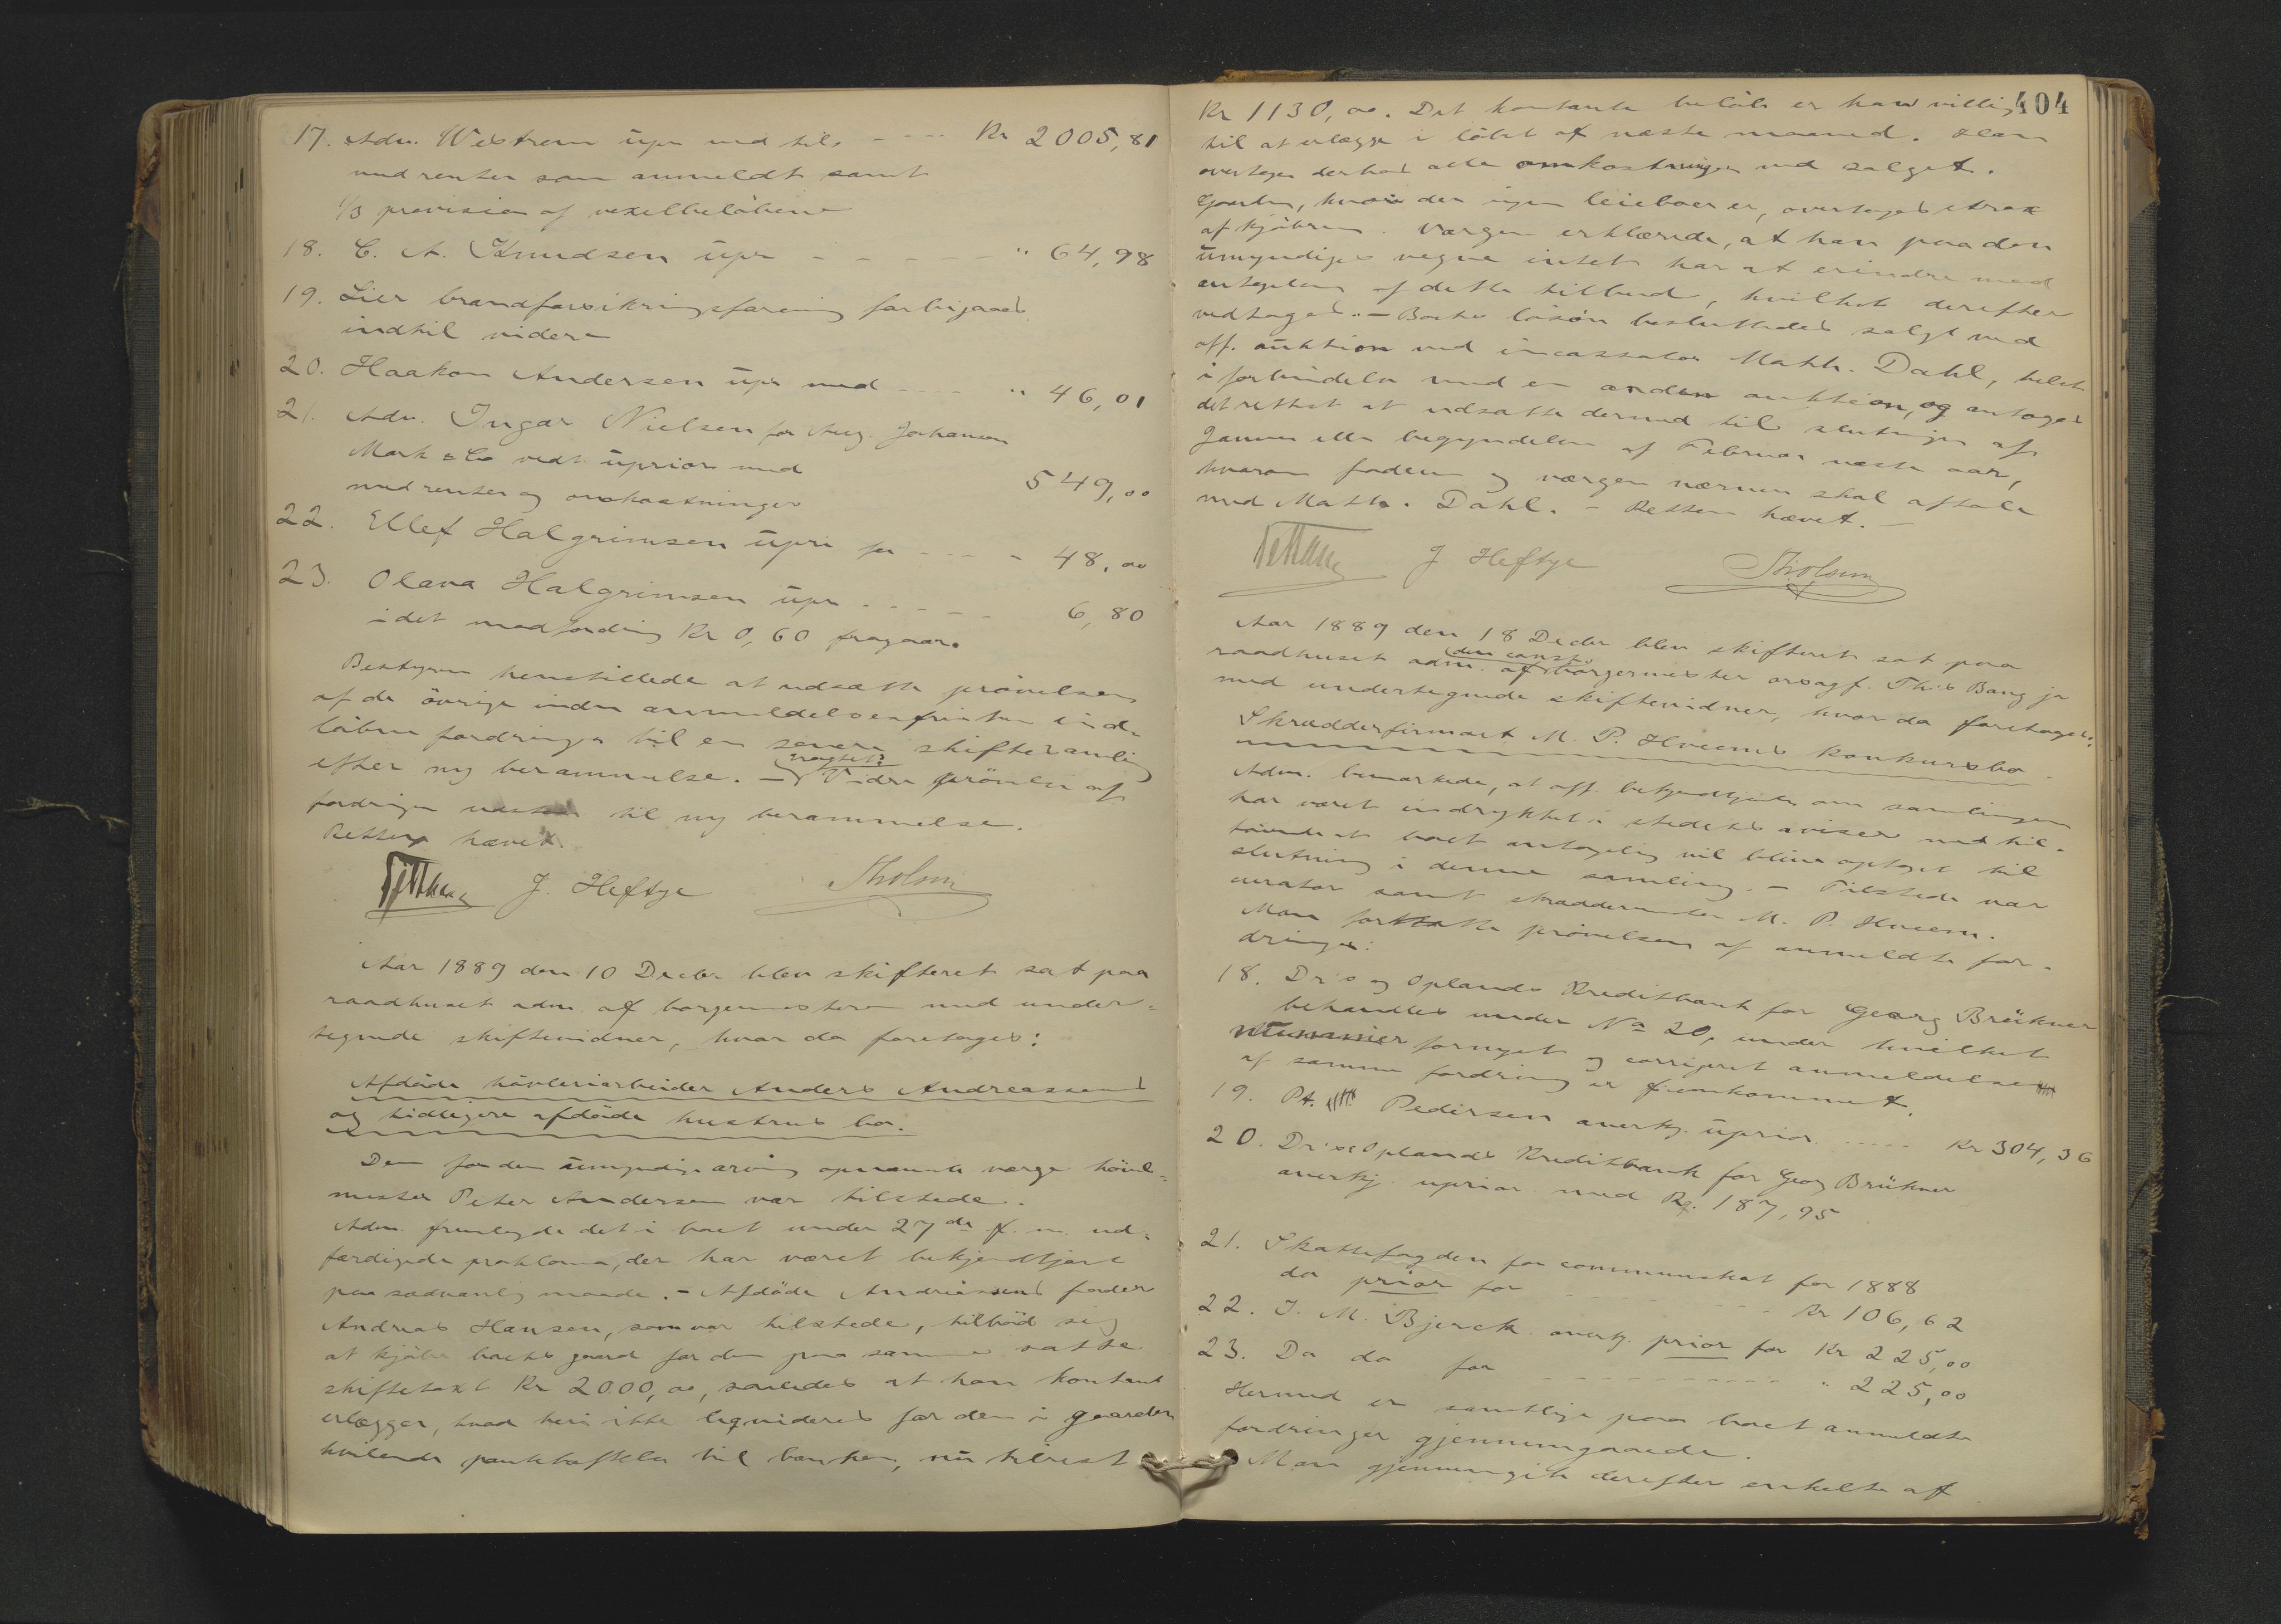 17. Adv. Wexstrem upr med til. - - - - Kr 2005,81
med renter som anmeldt samt
1/3 provision af vexelbelöbene
18. C. A. Knudsen upr - - - - - " 64,98
19. Lier brandforsikringsforening forbigaaes
indtil videre
20. Haakon Andersen upr med - - - " 46,01
21. Adv. Ingar Nielsen for Aug. Johansen
Mork & Co vedt. uprior med 549,00
med renter og omkostninger
22. Ellef Halgrimsen upri for - - - - 48,00
23. Olava Halgrimsen upr - - - - - 6,80
idet modfordring Kr 0,60 fragaar.
Bestyren henstillede at udsætte prövelsen
af de övrige inden anmeldelsesfristen ind-
löbne fordringer til en senere skiftesamling
efter ny berammelse. - Vidre prövelse af
fordringer udsat til ny berammelse.
Retten hævet.
J. Heftye Th. Olsen
Aar 1889 den 10 Decbr blev skifteret sat paa
raadhuset adm. af borgermesteren med under-
tegnede skiftevidner, hvor da foretoges:
Afdöde hövleriarbeider Anders Andreassens
og tidligere afdöde hustrus bo.
Den for den umyndige arving opnævnte værge hövl-
mester Peter Andersen var tilstede.
Adm. fremlagde det i boet under 27de f. m. ud-
færdigede proklama, der har været bekjendtgjort
paa sædvanlig maade. - Afdöde Andreassens fader
Andreas Hansen, som var tilstede, tilböd sig
at kjöbe boets gaard for den paa samme satte
skiftetaxt Kr 2000,00, saaledes at han kontant
erlægger, hvad heri ikke liqvideres for den i gaarden
hvilende pantheftelse til banken, nu tilrest
404
Kr 1130,00. Det kontante belöb er han villig
til at erlægge i löbet af næste maaned. Han
overtager derhos alle omkostninger ved salget.
Gaarden, hvori der ingen leieboer er, overtages strax
af kjöberen. Værgen erklærede, at han paa den
umyndiges vegne intet har at erindre mod
antagelsen af dette tilbud, hvilket derefter
vedtoges. - Boets lösöre besluttedes solgt ved
off. auktion ved incassator Math. Dahl, helst
i forbindelse med en anden auktion, og antoges
det rettest at udsætte dermed til slutningen af
Januar eller begyndelsen af Februar næste aar,
hvorom faderen og værgen nærmere skal aftale
med Math. Dahl. - Retten hævet. -
J Heftye Th. Olsen
Aar 1889 den 18 Decbr blev skifteret sat paa
raadhuset adm. af den const. borgermester orsagf. Ths Bang jr
med undertegnede skiftevidner, hvor da foretoges:
Skrædderfirmaet M. P. Hveems konkursbo.
Adm. bemærkede, at off. bekjendtgjörelse om samlingen
har været indrykket i stedets aviser med til-
föiende at boet antagelig vil blive optaget til
slutning i denne samling. - Tilstede var
curator samt skræddermester M. P. Hveem.
Man fortsatte prövelsen af anmeldte for-
dringer:
18. Drs og Oplands Kreditbank for Georg Brükner
behandles under No 20, under hvilket
nummer fornyet og corrigeret anmeldelse
af samme fordring er fremkommet.
19. Pt. Pedersen anerkj. uprior. - - - - - Kr 304,36
20. Drs & Oplands Kreditbank for Georg Brükner
anerkj. uprior. med Kr. 187,95
21. Skattefogden for communeskat for 1888
do prior for - - - - - - - - Kr 106,62
22. J. M. Bjerck. anerkj. prior for Kr 225,00
23. Do do for - - - - - - - - - - " 225,00
Hermed er samtlige paa boet anmeldte
fordringer gjennemgaaede.
Man gjennemgik derefter enkelte af